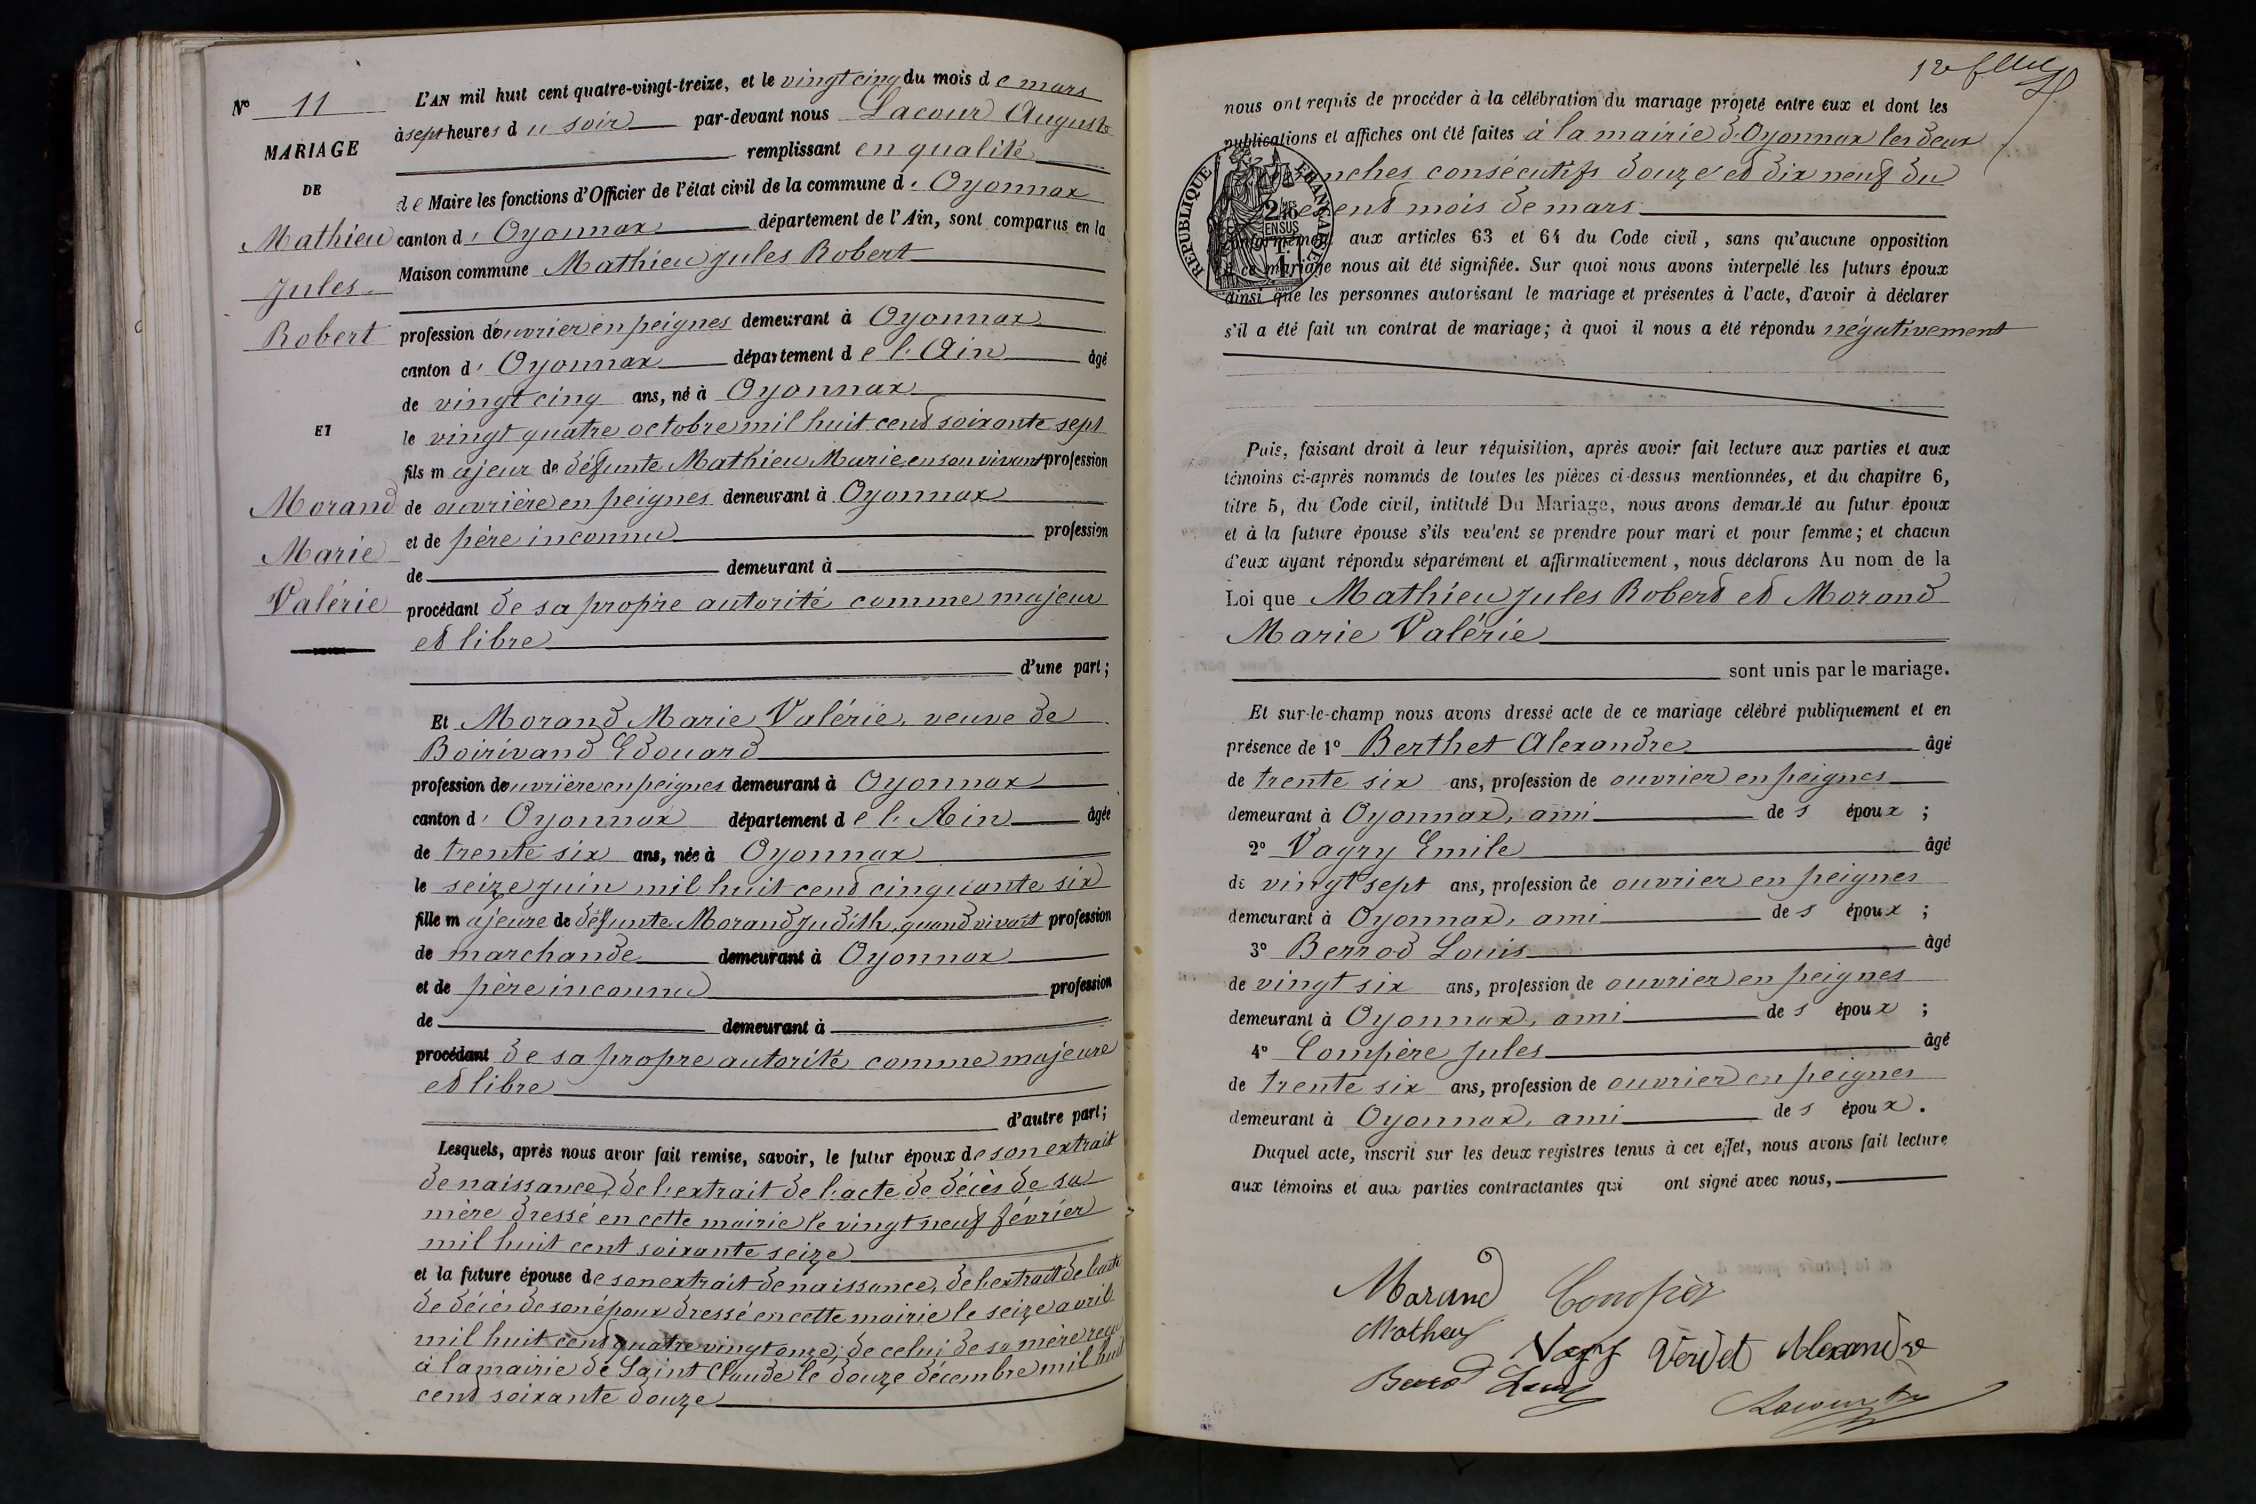 N° 11
MARIAGE
DE
Mathieu
Jules
Robert
ET
Morand
Marie
Valérie
L'AN mil huit cent quatre-vingt-treize, et le vingt cinq du mois de mars
à sept heures du soir par-devant nous Lacour Auguste
remplissant en qualité
de Maire les fonctions d'Officier de l'état civil de la commune d'Oyonnax
canton d'Oyonnax département de l'Ain, sont comparus en la
Maison commune Mathieu Jules Robert
profession d'ouvrier en peignes demeurant à Oyonnax
canton d'Oyonnax département de l'Ain âgé
de vingt cinq ans, né à Oyonnax
le vingt quatre octobre mil huit cent soixante sept
fils majeur de défunte Mathieu Marie, en son vivant profession
de ouvrière en peignes demeurant à Oyonnax
et de père inconnu profession
de demeurant à
procédant de sa propre autorité comme majeur
et libre
d'une part;
Et Morand Marie Valérie, veuve de
Boirivand Edouard
profession d'ouvrière en peignes demeurant à Oyonnax
canton d'Oyonnax département de l'Ain âgée
de trente six ans, née à Oyonnax
le seize juin mil huit cent cinquante six
fille majeure de défunte Morand Judith, quand vivait profession
de marchande demeurant à Oyonnax
et de père inconnu profession
de demeurant à
procédant de sa propre autorité comme majeure
et libre
d'autre part;
Lesquels, après nous avoir fait remise, savoir, le futur époux de son extrait
de naissance, de l'extrait de l'acte de décès de sa
mère dressé en cette mairie le vingt neuf février
mil huit cent soixante seize
et la future épouse de son extrait de naissance, de l'extrait de l'acte
de décès de son époux dressé en cette mairie le seize avril
mil huit cent quatre vingt onze; de celui de sa mère reçu
à la mairie de Saint Claude le douze décembre mil huit
cent soixante douze
nous ont requis de procéder à la célébration du mariage projeté entre eux et dont les
publications et affiches ont été faites à la mairie d'Oyonnax les deux
nches consécutifs douze et dix neuf du
ésent mois de mars
conformément aux articles 63 et 64 du Code civil, sans qu'aucune opposition
à ce mariage nous ait été signifiée. Sur quoi nous avons interpellé les futurs époux
ainsi que les personnes autorisant le mariage et présentes à l'acte, d'avoir à déclarer
s'il a été fait un contrat de mariage; à quoi il nous a été répondu négativement
RÉPUBLIQUE FRANÇAISE
Puis, faisant droit à leur réquisition, après avoir fait lecture aux parties et aux
témoins ci-après nommés de toutes les pièces ci-dessus mentionnées, et du chapitre 6,
titre 5, du Code civil, intitulé Du Mariage, nous avons demandé au futur époux
et à la future épouse s'ils veulent se prendre pour mari et pour femme; et chacun
d'eux ayant répondu séparément et affirmativement, nous déclarons Au nom de la
Loi que Mathieu Jules Robert et Morand
Marie Valérie
sont unis par le mariage.
Et sur-le-champ nous avons dressé acte de ce mariage célébré publiquement et en
présence de 1° Berthet Alexandre âgé
de trente six ans, profession de ouvrier en peignes
demeurant à Oyonnax, ami des époux;
2° Vagry Emile âgé
de vingt sept ans, profession de ouvrier en peignes
demeurant à Oyonnax, ami des époux;
3° Berrod Louis âgé
de vingt six ans, profession de ouvrier en peignes
demeurant à Oyonnax, ami des époux;
4° Compère Jules âgé
de trente six ans, profession de ouvrier en peignes
demeurant à Oyonnax, ami des époux.
Duquel acte, inscrit sur les deux registres tenus à cet effet, nous avons fait lecture
aux témoins et aux parties contractantes qui ont signé avec nous,
Morand Compèr
Mathieu Vagry Alexandre
Berrod Louis